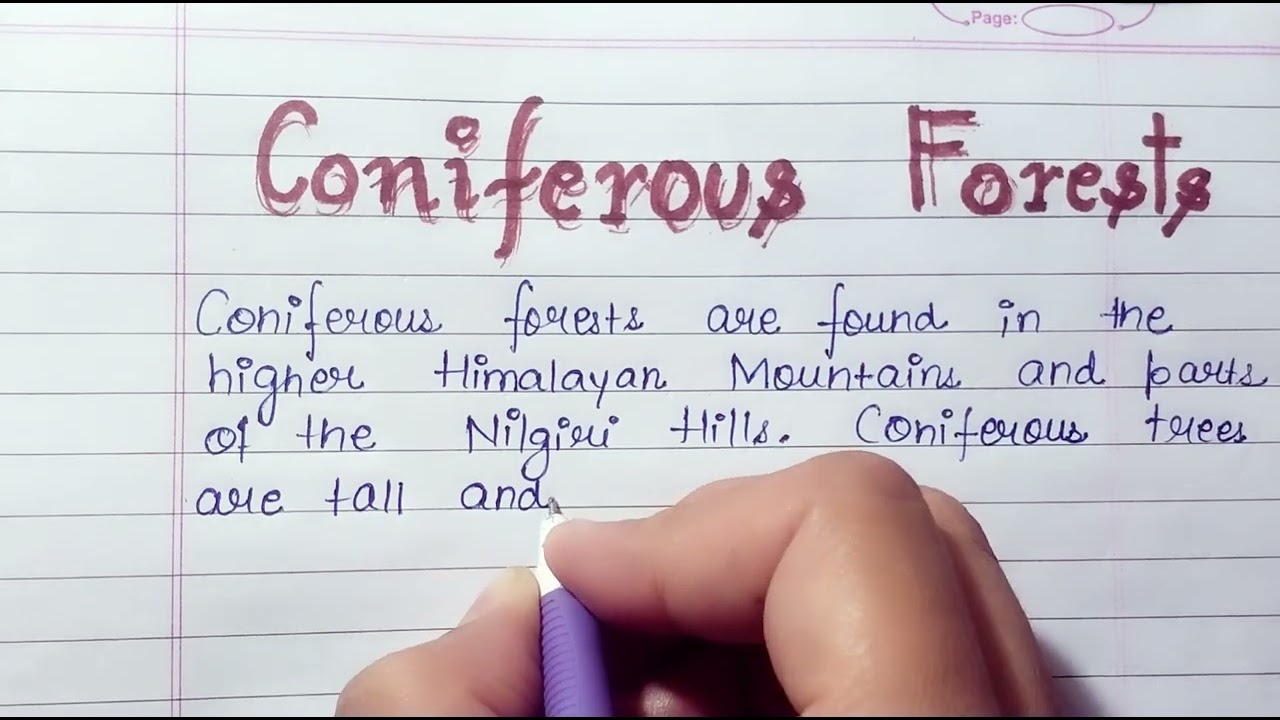 Page:
Coniferous Forests
Coniferous forests are found in the
higher Himalayan Mountains and parts
of the Nilgiri Hills. Coniferous trees
are tall and